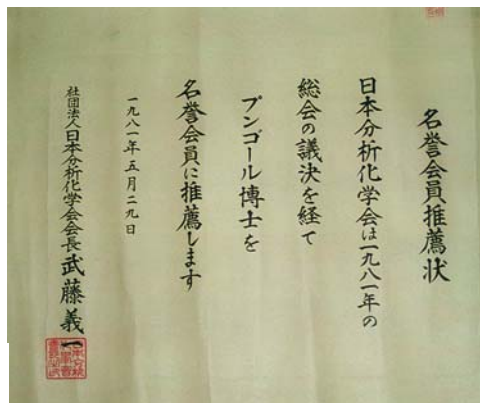 名誉会員推薦状
日本分析化学会は一九八一年の
総会の議決を経て
プンゴール博士を
名誉会員に推薦します
一九八一年五月二九日
社団法人日本分析化学会会長 武藤義一